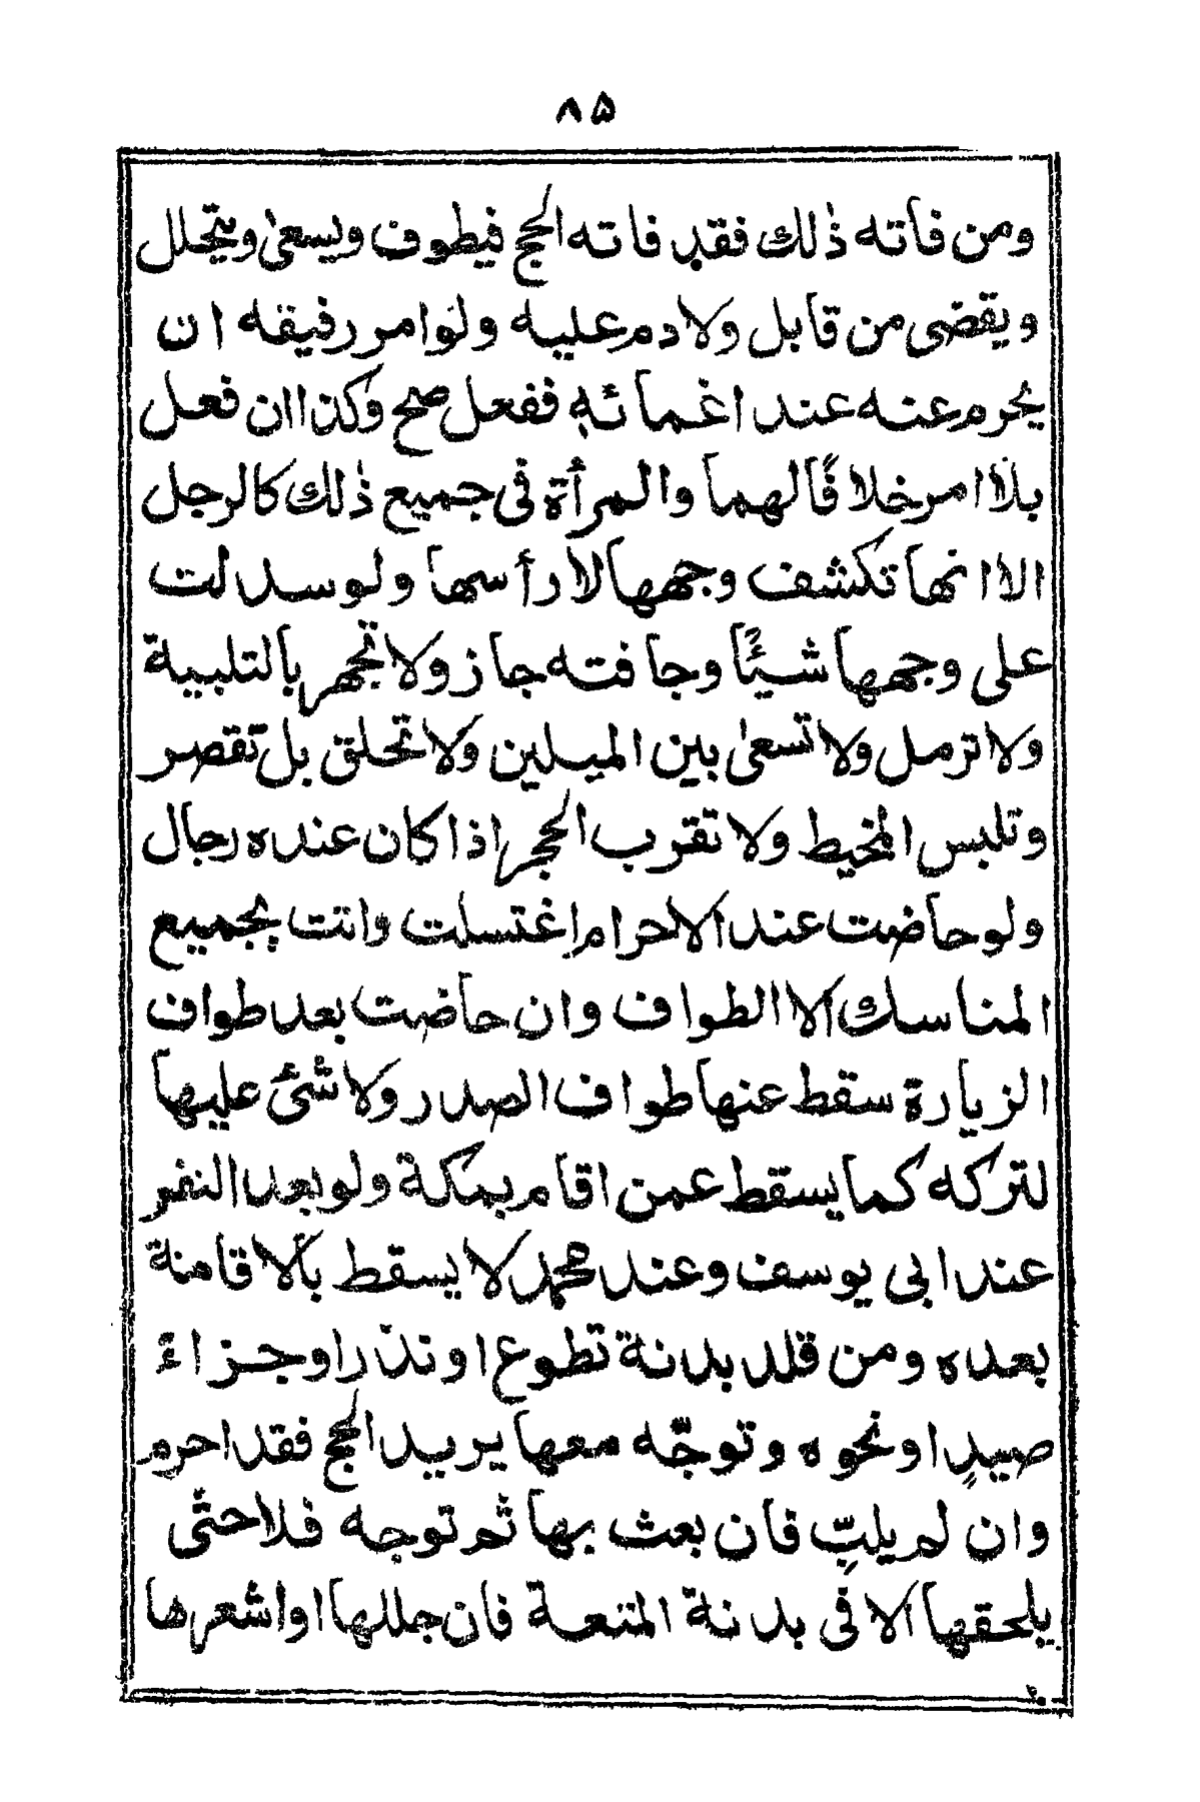 ۸۵
ومن فاته ذٰلك فقد فاته الحج فيطوف ويسعىٰ ويتحلل
ويقضى من قابل ولادم عليه ولوامررفيقه ان
يحرم عنه عند اغمائه ففعل صح وكذا ان فعل
بلاامرخلافًا لهما والمرأة فى جميع ذٰلك كالرجل
الا انها تكشف وجهها لا رأسها ولوسدلت
على وجهها شيئًا وجافته جاز ولاتجهر بالتلبية
ولاترمل ولاتسعىٰ بين الميلين ولاتحلق بل تقصر
وتلبس المخيط ولاتقرب الحجراذا كان عنده رجال
ولوحاضت عند الاحرام اغتسلت واتت بجميع
المناسك الا الطواف وان حاضت بعد طواف
الزيارة سقط عنها طواف الصدر ولاشئ عليها
لتركه كما يسقط عمن اقام بمكة ولوبعد النفر
عند ابى يوسف وعند محمد لا يسقط بالاقامة
بعده ومن قلد بدنة تطوع اونذراوجزاءً
صيدٍ اونحوه وتوجّه معها يريد الحج فقد احرم
وان لم يلبّ فان بعث بها ثم توجه فلاحتّى
يلحقها الا فى بدنة المتعة فان جللها اواشعرها